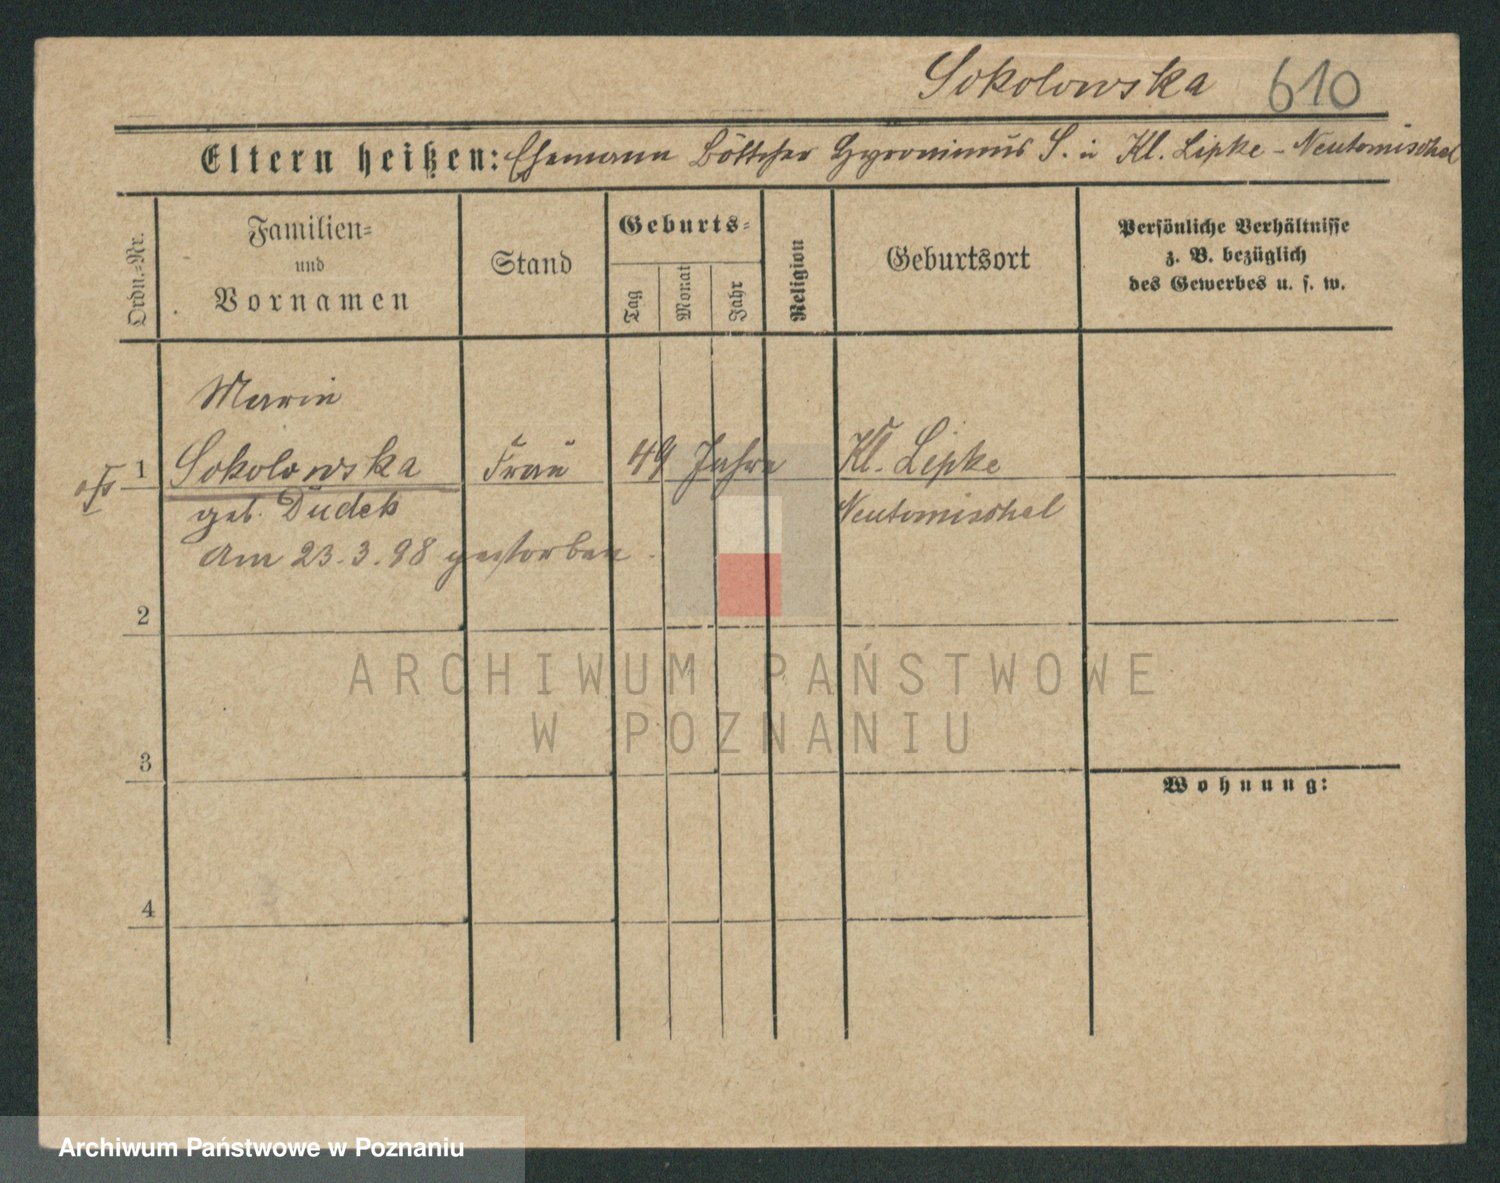 Sokolowska 610
Eltern heißen: Ehemann Böttcher Hyronimus S. in Kl. Lipke - Neutomischel
Ordn.-Nr.
Familien-
und
Vornamen
Stand
Geburts-
Tag
Monat
Jahr
Religion
Geburtsort
Persönliche Verhältnisse
z. B. bezüglich
des Gewerbes u. s. w.
Marie
1 Sokolowska Frau 49 Jahre Kl. Lipke
geb. Dudek Neutomischel
am 23.3.98 gestorben.
2
ARCHIWUM PAŃSTWOWE
W POZNANIU
3
Wohnung:
4
Archiwum Państwowe w Poznaniu